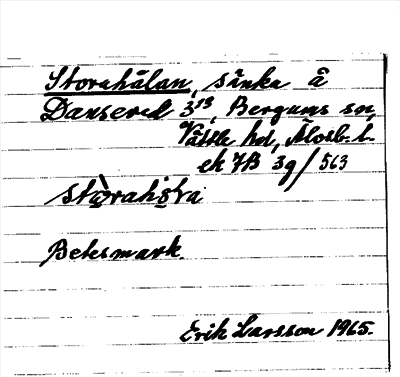 Storahålan, sänka å
Danserед 3¹³, Bergums sn,
Vättle hd, Älvsb. l.
ek 7B 3g/563
Betesmark.
Erik Larsson 1965.